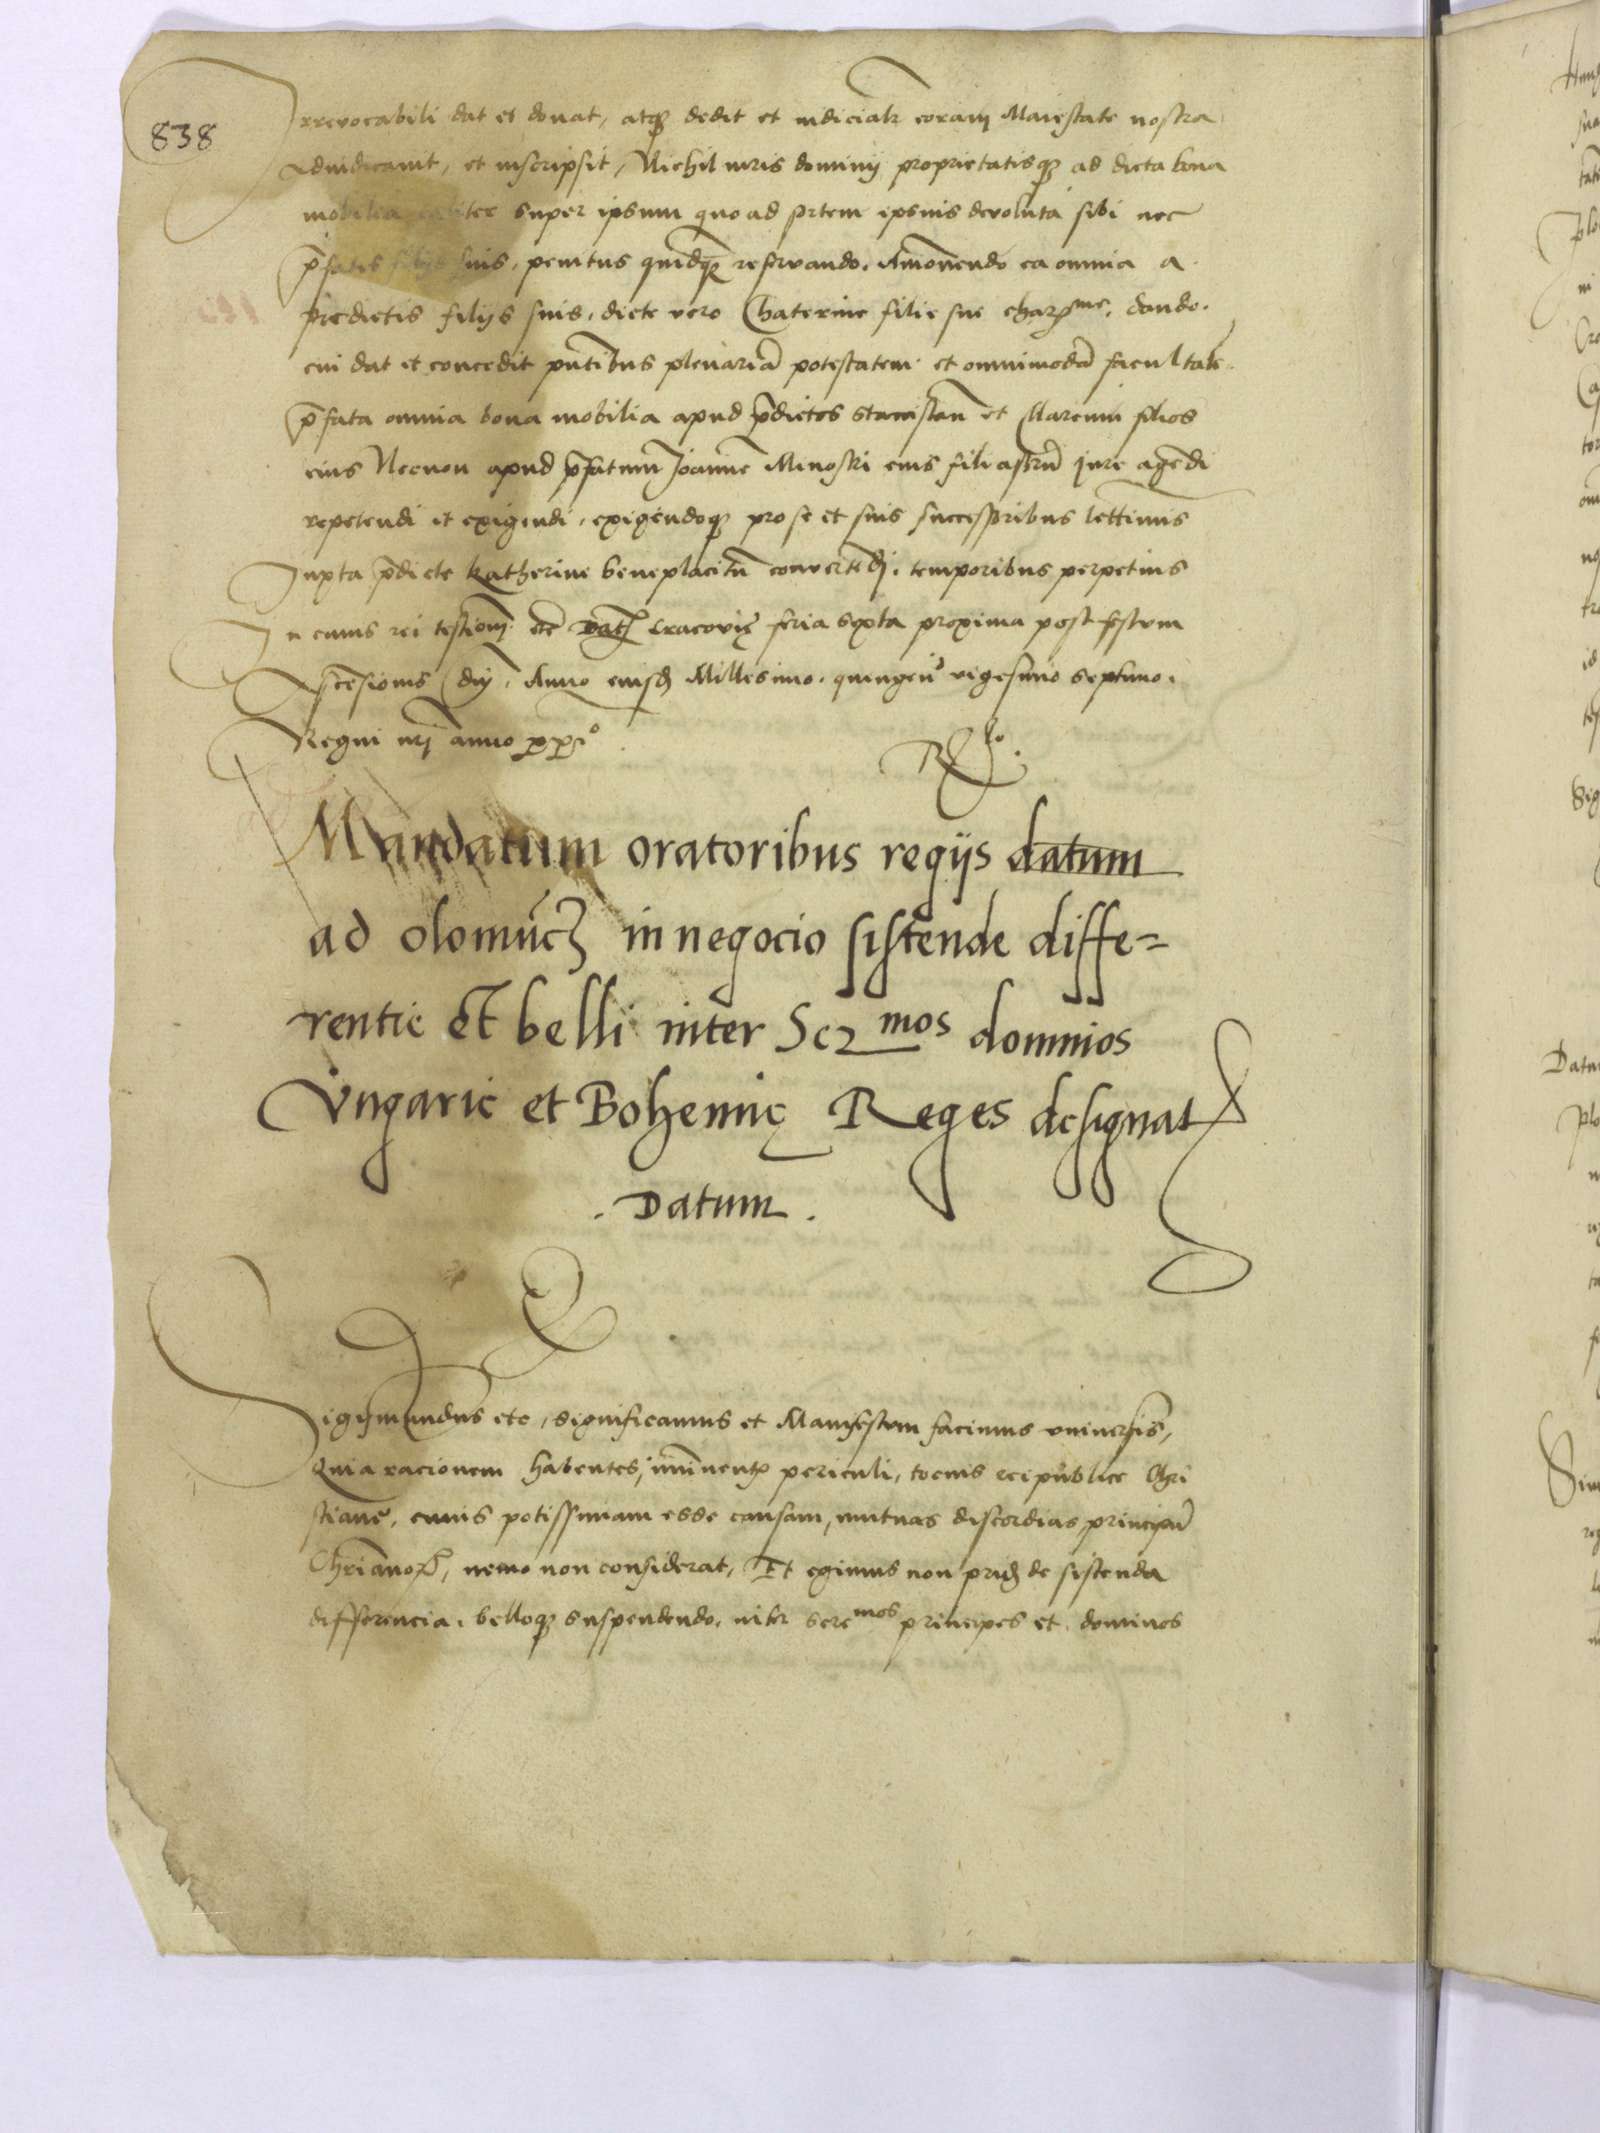 838
Irrevocabili dat et donat, atq3 dedit et iudicialr coram Maiestate nostra
Adiudicauit, et inscripsit, Nichil iuris dominij proprietatisq3 ad dicta bona
mobilia super ipsum quo ad prtem ipsius deuoluta sibi nec
p̄fatis filijs suis, penitus quidq̄3 reseruando. Amouendo ea omnia a
predictis filijs suis, dicte vero Chaterine filie sue char^me, dando.
cui dat et concedit pn̄tibus plenariā potestatem et omnimodā facultatē.
p̄fata omnia bona mobilia apud p̄dictos et Marcum filios
eius Necnon apud p̄fatum Joannē Minoski eius filiastrū jure agēdi
repetendi et exigendi, exigēdoq3 pro se et suis successoribus lēttimis
Juxta p̄dicte Katherine beneplacitū conuertēdj. temporibus perpetuis
In cuius rei testioniū etc̄ Dat3 Cracovię feria sexta proxima post festum
Ascēsionis dnj, Anno eiusd3 Millesimo. quingen^o vigesimo septimo.
Regni nrj anno
Mandatum oratoribus regijs datum
ad olomūc3 in negocio sistende diffe=
rentie et belli inter Ser^mos dominos
Vngarie et Bohemię Reges designat
. Datum .
Sigismundus etc, significamus et Manifestum facimus vniuersis,
Quia racionem habentes, imīnentis periculi, tocius reipublice Chri
stianę, cuius potissimam esse causam, mutuas discordias principū
Chrīanor3, nemo non considerat, Et egimus non prid3 de sistenda
differencia. belloq3 suspendendo. intr sere^mos principes et dominos